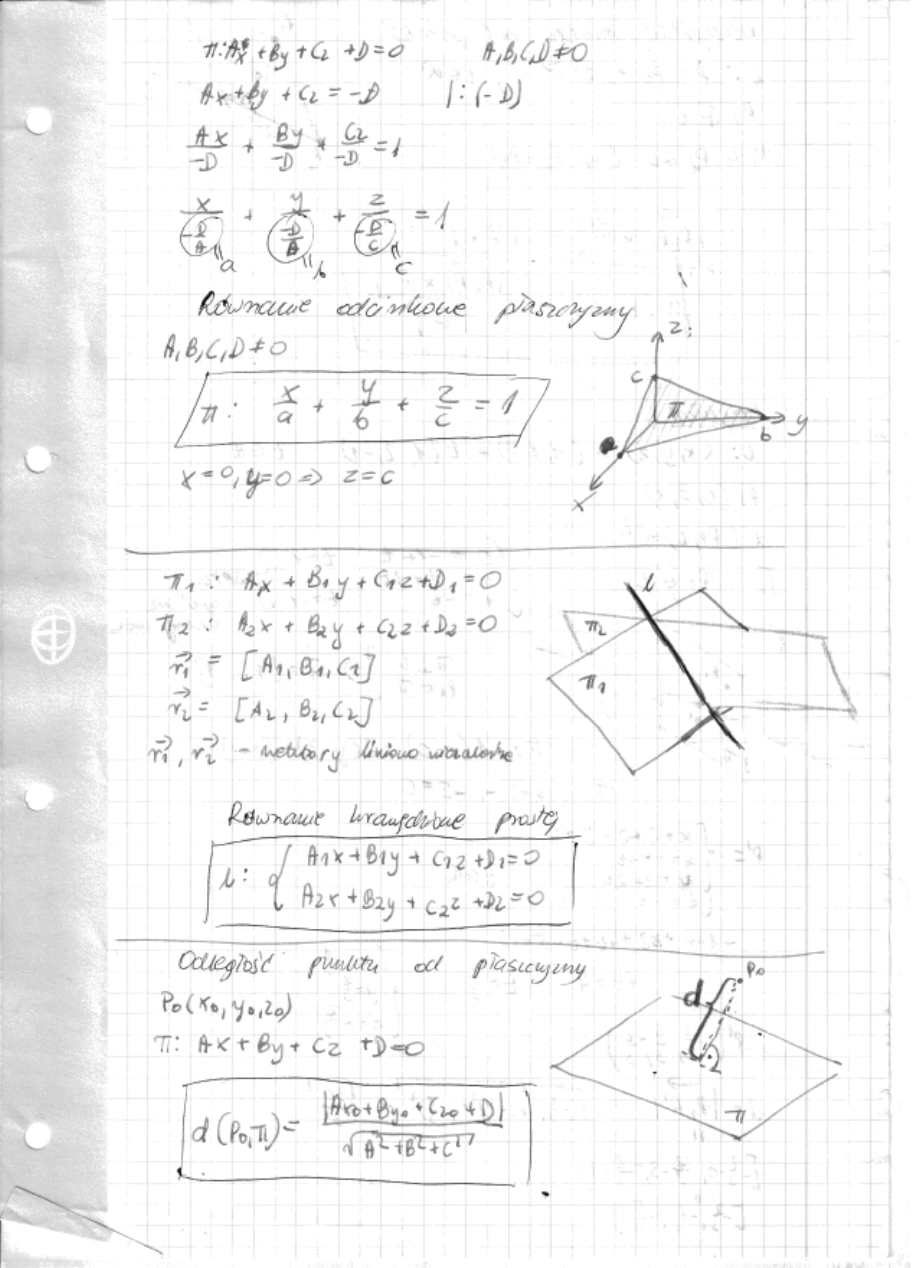 π: Ax + By + Cz + D = 0 A,B,C,D ≠ 0
Ax + By + Cz = -D |: (-D)
Ax/-D + By/-D + Cz/-D = 1
x/(-D/A) + y/(-D/B) + z/(-D/C) = 1
= a = b = c
Równanie odcinkowe płaszczyzny
A,B,C,D ≠ 0
π: x/a + y/b + z/c = 1
x=0, y=0 => z=c
z
c
π
a
b
y
x
π1 : A1x + B1y + C1z + D1 = 0
π2 : A2x + B2y + C2z + D2 = 0
r1 = [A1, B1, C1]
r2 = [A2, B2, C2]
r1, r2 - wektory liniowo niezależne
l
π2
π1
Równanie krawędziowe prostej
l: { A1x + B1y + C1z + D1 = 0
A2x + B2y + C2z + D2 = 0
Odległość punktu od płaszczyzny
P0 (x0, y0, z0)
π: Ax + By + Cz + D = 0
d (P0, π) = |Ax0 + By0 + Cz0 + D| / √(A² + B² + C²)
P0
d
π